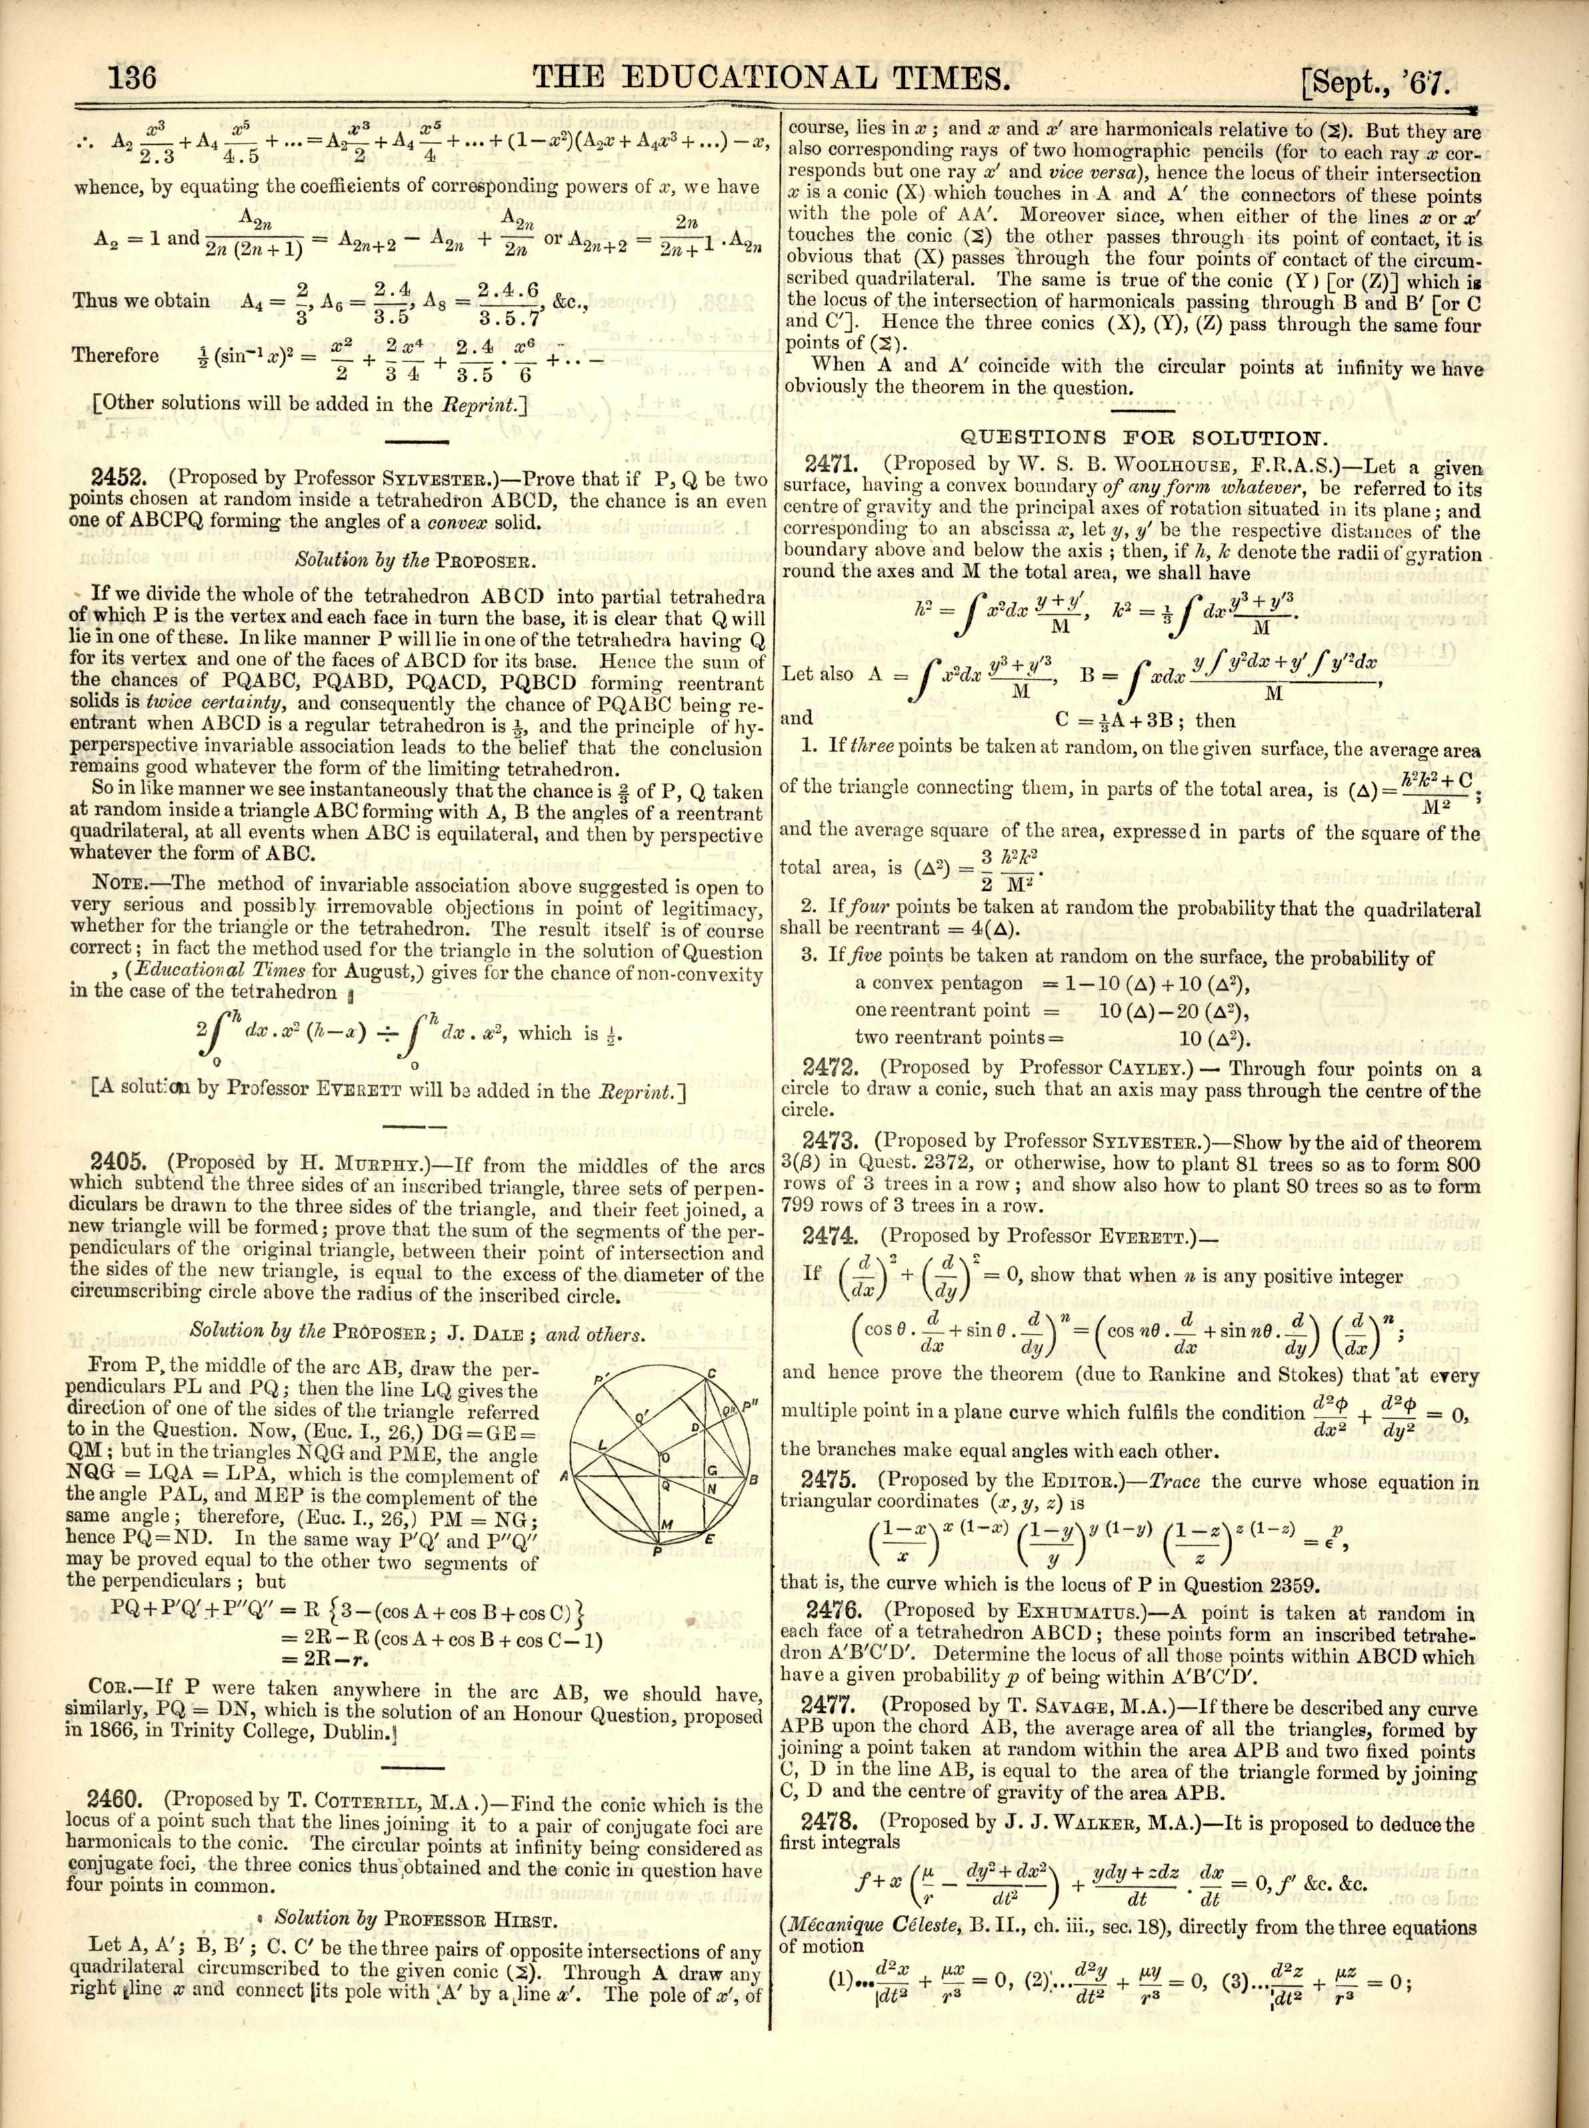 136
THE EDUCATIONAL TIMES.
[Sept., '67.
∴ A₂ x³/2.3 + A₄ x⁵/4.5 + ... = A₂ x³/2 + A₄ x⁵/4 + ... + (1−x²)(A₂x + A₄x³ + ...) − x,
whence, by equating the coefficients of corresponding powers of x, we have
A₂ = 1 and A₂ₙ/2n (2n+1) = A₂ₙ₊₂ − A₂ₙ + A₂ₙ/2n or A₂ₙ₊₂ = 2n/2n+1 . A₂ₙ
Thus we obtain A₄ = 2/3, A₆ = 2.4/3.5, A₈ = 2.4.6/3.5.7, &c.,
Therefore ½ (sin⁻¹ x)² = x²/2 + 2/3 x⁴/4 + 2.4/3.5 . x⁶/6 + .. −
[Other solutions will be added in the Reprint.]
2452. (Proposed by Professor SYLVESTER.)—Prove that if P, Q be two
points chosen at random inside a tetrahedron ABCD, the chance is an even
one of ABCPQ forming the angles of a convex solid.
Solution by the PROPOSER.
If we divide the whole of the tetrahedron ABCD into partial tetrahedra
of which P is the vertex and each face in turn the base, it is clear that Q will
lie in one of these. In like manner P will lie in one of the tetrahedra having Q
for its vertex and one of the faces of ABCD for its base. Hence the sum of
the chances of PQABC, PQABD, PQACD, PQBCD forming reentrant
solids is twice certainty, and consequently the chance of PQABC being re-
entrant when ABCD is a regular tetrahedron is ½, and the principle of hy-
perperspective invariable association leads to the belief that the conclusion
remains good whatever the form of the limiting tetrahedron.
So in like manner we see instantaneously that the chance is ⅔ of P, Q taken
at random inside a triangle ABC forming with A, B the angles of a reentrant
quadrilateral, at all events when ABC is equilateral, and then by perspective
whatever the form of ABC.
NOTE.—The method of invariable association above suggested is open to
very serious and possibly irremovable objections in point of legitimacy,
whether for the triangle or the tetrahedron. The result itself is of course
correct; in fact the method used for the triangle in the solution of Question
, (Educational Times for August,) gives for the chance of non-convexity
in the case of the tetrahedron
2∫₀ʰ dx . x² (h−x) ÷ ∫₀ʰ dx . x², which is ½.
[A solution by Professor EVERETT will be added in the Reprint.]
2405. (Proposed by H. MURPHY.)—If from the middles of the arcs
which subtend the three sides of an inscribed triangle, three sets of perpen-
diculars be drawn to the three sides of the triangle, and their feet joined, a
new triangle will be formed; prove that the sum of the segments of the per-
pendiculars of the original triangle, between their point of intersection and
the sides of the new triangle, is equal to the excess of the diameter of the
circumscribing circle above the radius of the inscribed circle.
Solution by the PROPOSER; J. DALE; and others.
From P, the middle of the arc AB, draw the per-
pendiculars PL and PQ; then the line LQ gives the
direction of one of the sides of the triangle referred
to in the Question. Now, (Euc. I., 26,) DG=GE=
QM; but in the triangles NQG and PME, the angle
NQG = LQA = LPA, which is the complement of
the angle PAL, and MEP is the complement of the
same angle; therefore, (Euc. I., 26,) PM = NG;
hence PQ=ND. In the same way P'Q' and P''Q''
may be proved equal to the other two segments of
the perpendiculars; but
P' C Q'' P'' Q' D L O A G B Q N M P E
PQ+P'Q'+P''Q'' = R {3−(cos A+cos B+cos C)}
= 2R−R (cos A+cos B+cos C−1)
= 2R−r.
COR.—If P were taken anywhere in the arc AB, we should have,
similarly, PQ = DN, which is the solution of an Honour Question, proposed
in 1866, in Trinity College, Dublin.]
2460. (Proposed by T. COTTERILL, M.A.)—Find the conic which is the
locus of a point such that the lines joining it to a pair of conjugate foci are
harmonicals to the conic. The circular points at infinity being considered as
conjugate foci, the three conics thus obtained and the conic in question have
four points in common.
Solution by PROFESSOR HIRST.
Let A, A'; B, B'; C, C' be the three pairs of opposite intersections of any
quadrilateral circumscribed to the given conic (Σ). Through A draw any
right line x and connect its pole with A' by a line x'. The pole of x', of
course, lies in x; and x and x' are harmonicals relative to (Σ). But they are
also corresponding rays of two homographic pencils (for to each ray x cor-
responds but one ray x' and vice versa), hence the locus of their intersection
x is a conic (X) which touches in A and A' the connectors of these points
with the pole of AA'. Moreover since, when either of the lines x or x'
touches the conic (Σ) the other passes through its point of contact, it is
obvious that (X) passes through the four points of contact of the circum-
scribed quadrilateral. The same is true of the conic (Y) [or (Z)] which is
the locus of the intersection of harmonicals passing through B and B' [or C
and C']. Hence the three conics (X), (Y), (Z) pass through the same four
points of (Σ).
When A and A' coincide with the circular points at infinity we have
obviously the theorem in the question.
QUESTIONS FOR SOLUTION.
2471. (Proposed by W. S. B. WOOLHOUSE, F.R.A.S.)—Let a given
surface, having a convex boundary of any form whatever, be referred to its
centre of gravity and the principal axes of rotation situated in its plane; and
corresponding to an abscissa x, let y, y' be the respective distances of the
boundary above and below the axis; then, if h, k denote the radii of gyration
round the axes and M the total area, we shall have
h² = ∫ x²dx (y+y')/M, k² = ⅓ ∫ dx (y³+y'³)/M.
Let also A = ∫ x²dx (y³+y'³)/M, B = ∫ xdx (y ∫ y²dx + y' ∫ y'²dx)/M,
and C = ⅓A + 3B; then
1. If three points be taken at random, on the given surface, the average area
of the triangle connecting them, in parts of the total area, is (Δ) = (h²k² + C)/M²;
and the average square of the area, expressed in parts of the square of the
total area, is (Δ²) = 3/2 h²k²/M².
2. If four points be taken at random the probability that the quadrilateral
shall be reentrant = 4(Δ).
3. If five points be taken at random on the surface, the probability of
a convex pentagon = 1−10 (Δ) + 10 (Δ²),
one reentrant point = 10 (Δ) − 20 (Δ²),
two reentrant points = 10 (Δ²).
2472. (Proposed by Professor CAYLEY.) — Through four points on a
circle to draw a conic, such that an axis may pass through the centre of the
circle.
2473. (Proposed by Professor SYLVESTER.)—Show by the aid of theorem
3(β) in Quest. 2372, or otherwise, how to plant 81 trees so as to form 800
rows of 3 trees in a row; and show also how to plant 80 trees so as to form
799 rows of 3 trees in a row.
2474. (Proposed by Professor EVERETT.)—
If (d/dx)² + (d/dy)² = 0, show that when n is any positive integer
(cos θ . d/dx + sin θ . d/dy)ⁿ = (cos nθ . d/dx + sin nθ . d/dy) (d/dx)ⁿ;
and hence prove the theorem (due to Rankine and Stokes) that at every
multiple point in a plane curve which fulfils the condition d²φ/dx² + d²φ/dy² = 0,
the branches make equal angles with each other.
2475. (Proposed by the EDITOR.)—Trace the curve whose equation in
triangular coordinates (x, y, z) is
((1−x)/x)^x(1−x) ((1−y)/y)^y(1−y) ((1−z)/z)^z(1−z) = ε^p,
that is, the curve which is the locus of P in Question 2359.
2476. (Proposed by EXHUMATUS.)—A point is taken at random in
each face of a tetrahedron ABCD; these points form an inscribed tetrahe-
dron A'B'C'D'. Determine the locus of all those points within ABCD which
have a given probability p of being within A'B'C'D'.
2477. (Proposed by T. SAVAGE, M.A.)—If there be described any curve
APB upon the chord AB, the average area of all the triangles, formed by
joining a point taken at random within the area APB and two fixed points
C, D in the line AB, is equal to the area of the triangle formed by joining
C, D and the centre of gravity of the area APB.
2478. (Proposed by J. J. WALKER, M.A.)—It is proposed to deduce the
first integrals
f + x (μ/r − (dy²+dx²)/dt²) + (ydy + zdz)/dt . dx/dt = 0, f' &c. &c.
(Mécanique Céleste, B. II., ch. iii., sec. 18), directly from the three equations
of motion
(1)... d²x/dt² + μx/r³ = 0, (2)... d²y/dt² + μy/r³ = 0, (3)... d²z/dt² + μz/r³ = 0;